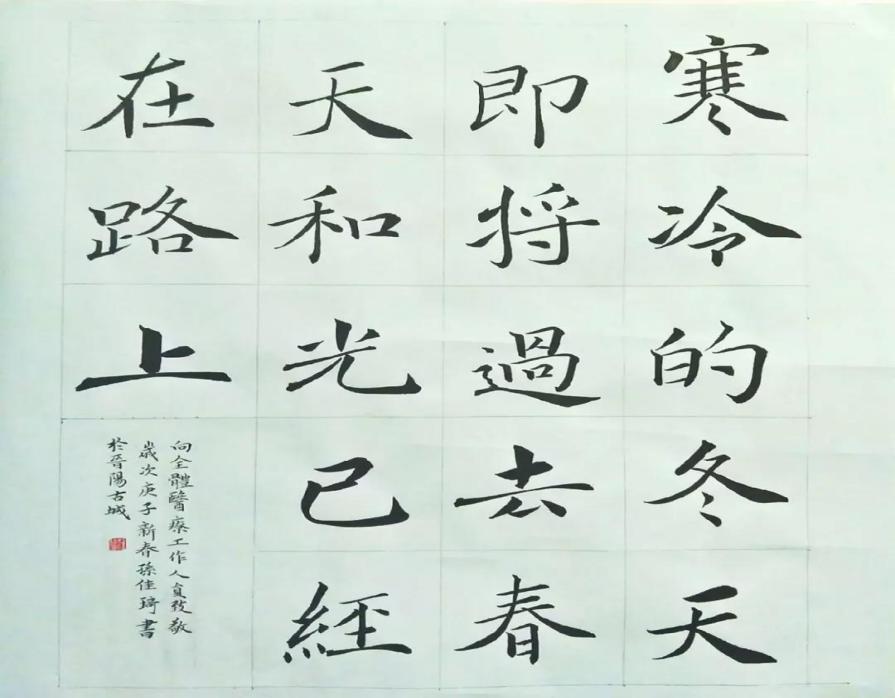 寒冷的冬天
即将過去春
天和光已經
在路上
向全體醫療工作人員致敬
歲次庚子新春孫佳琦書
於晉陽古城